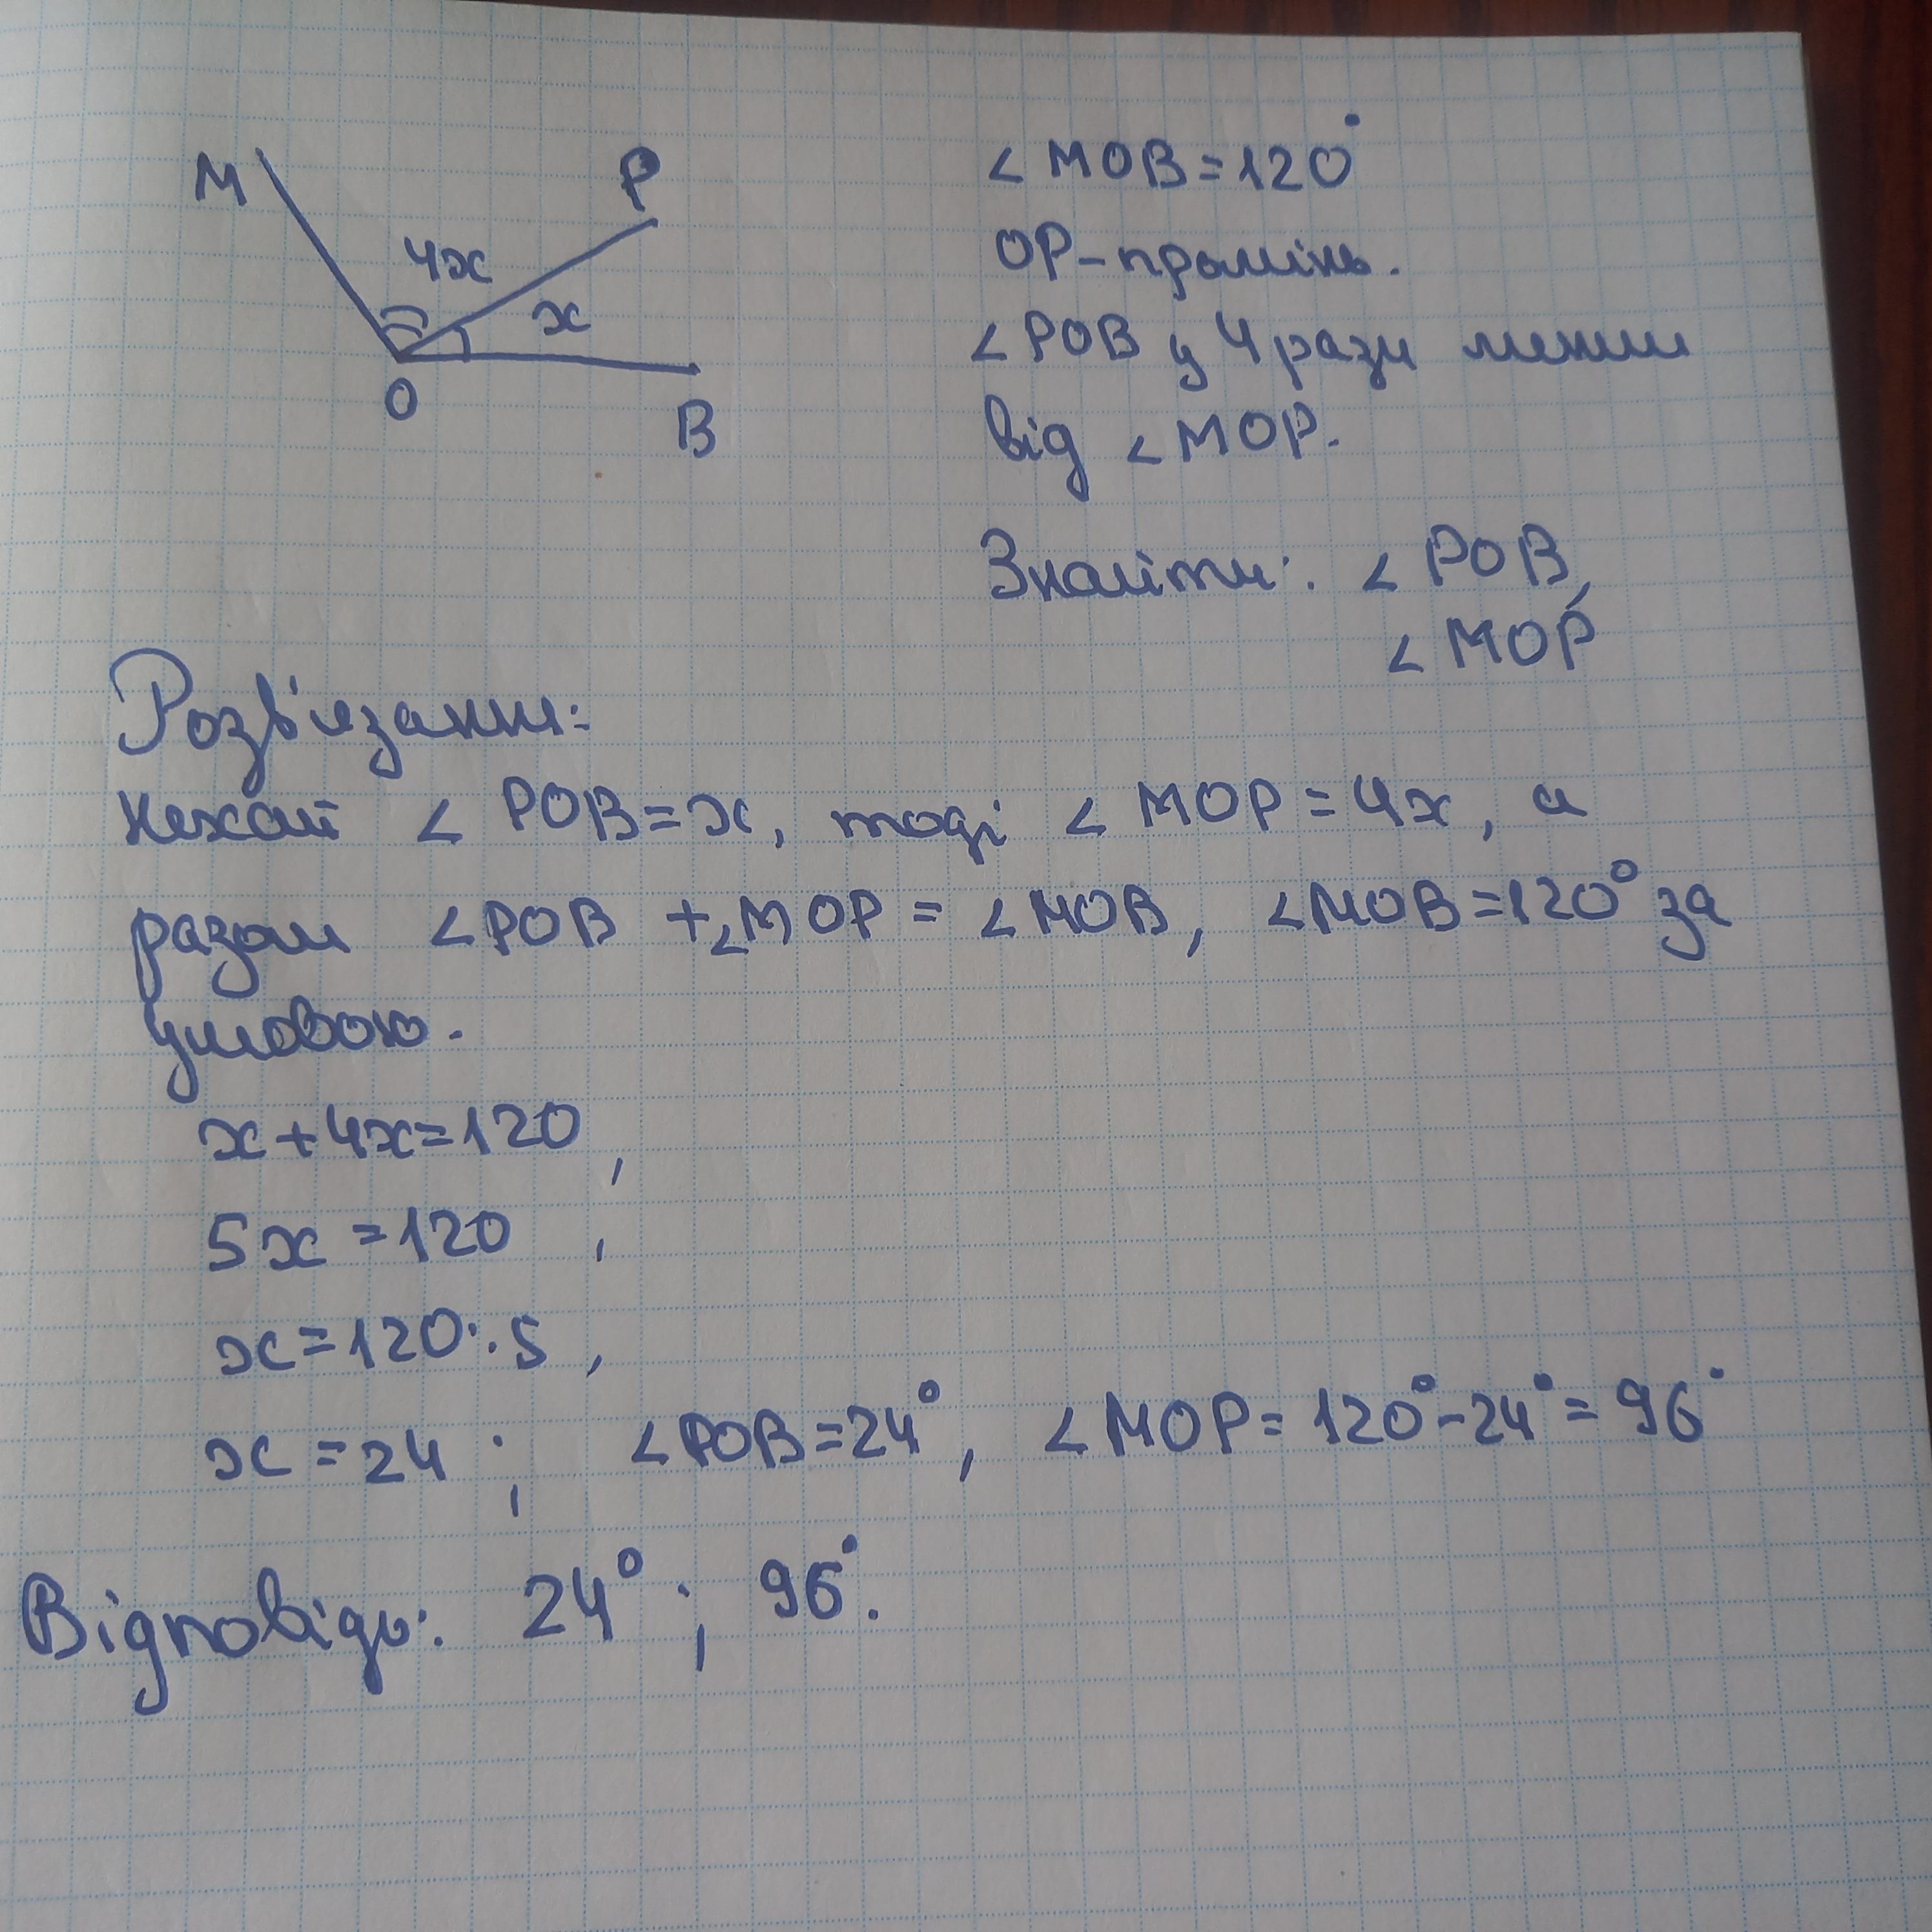 M
P
4x
x
O
B
∠MOB=120°
OP-промінь.
∠POB у 4 рази менше
від ∠MOP.
Знайти: ∠POB,
∠MOP
Розв'язання:
нехай ∠POB=x, тоді ∠MOP=4x, а
разом ∠POB+∠MOP=∠MOB, ∠MOB=120° за
умовою.
x+4x=120,
5x=120,
x=120:5,
x=24; ∠POB=24°, ∠MOP=120°-24°=96°
Відповідь: 24°; 96°.